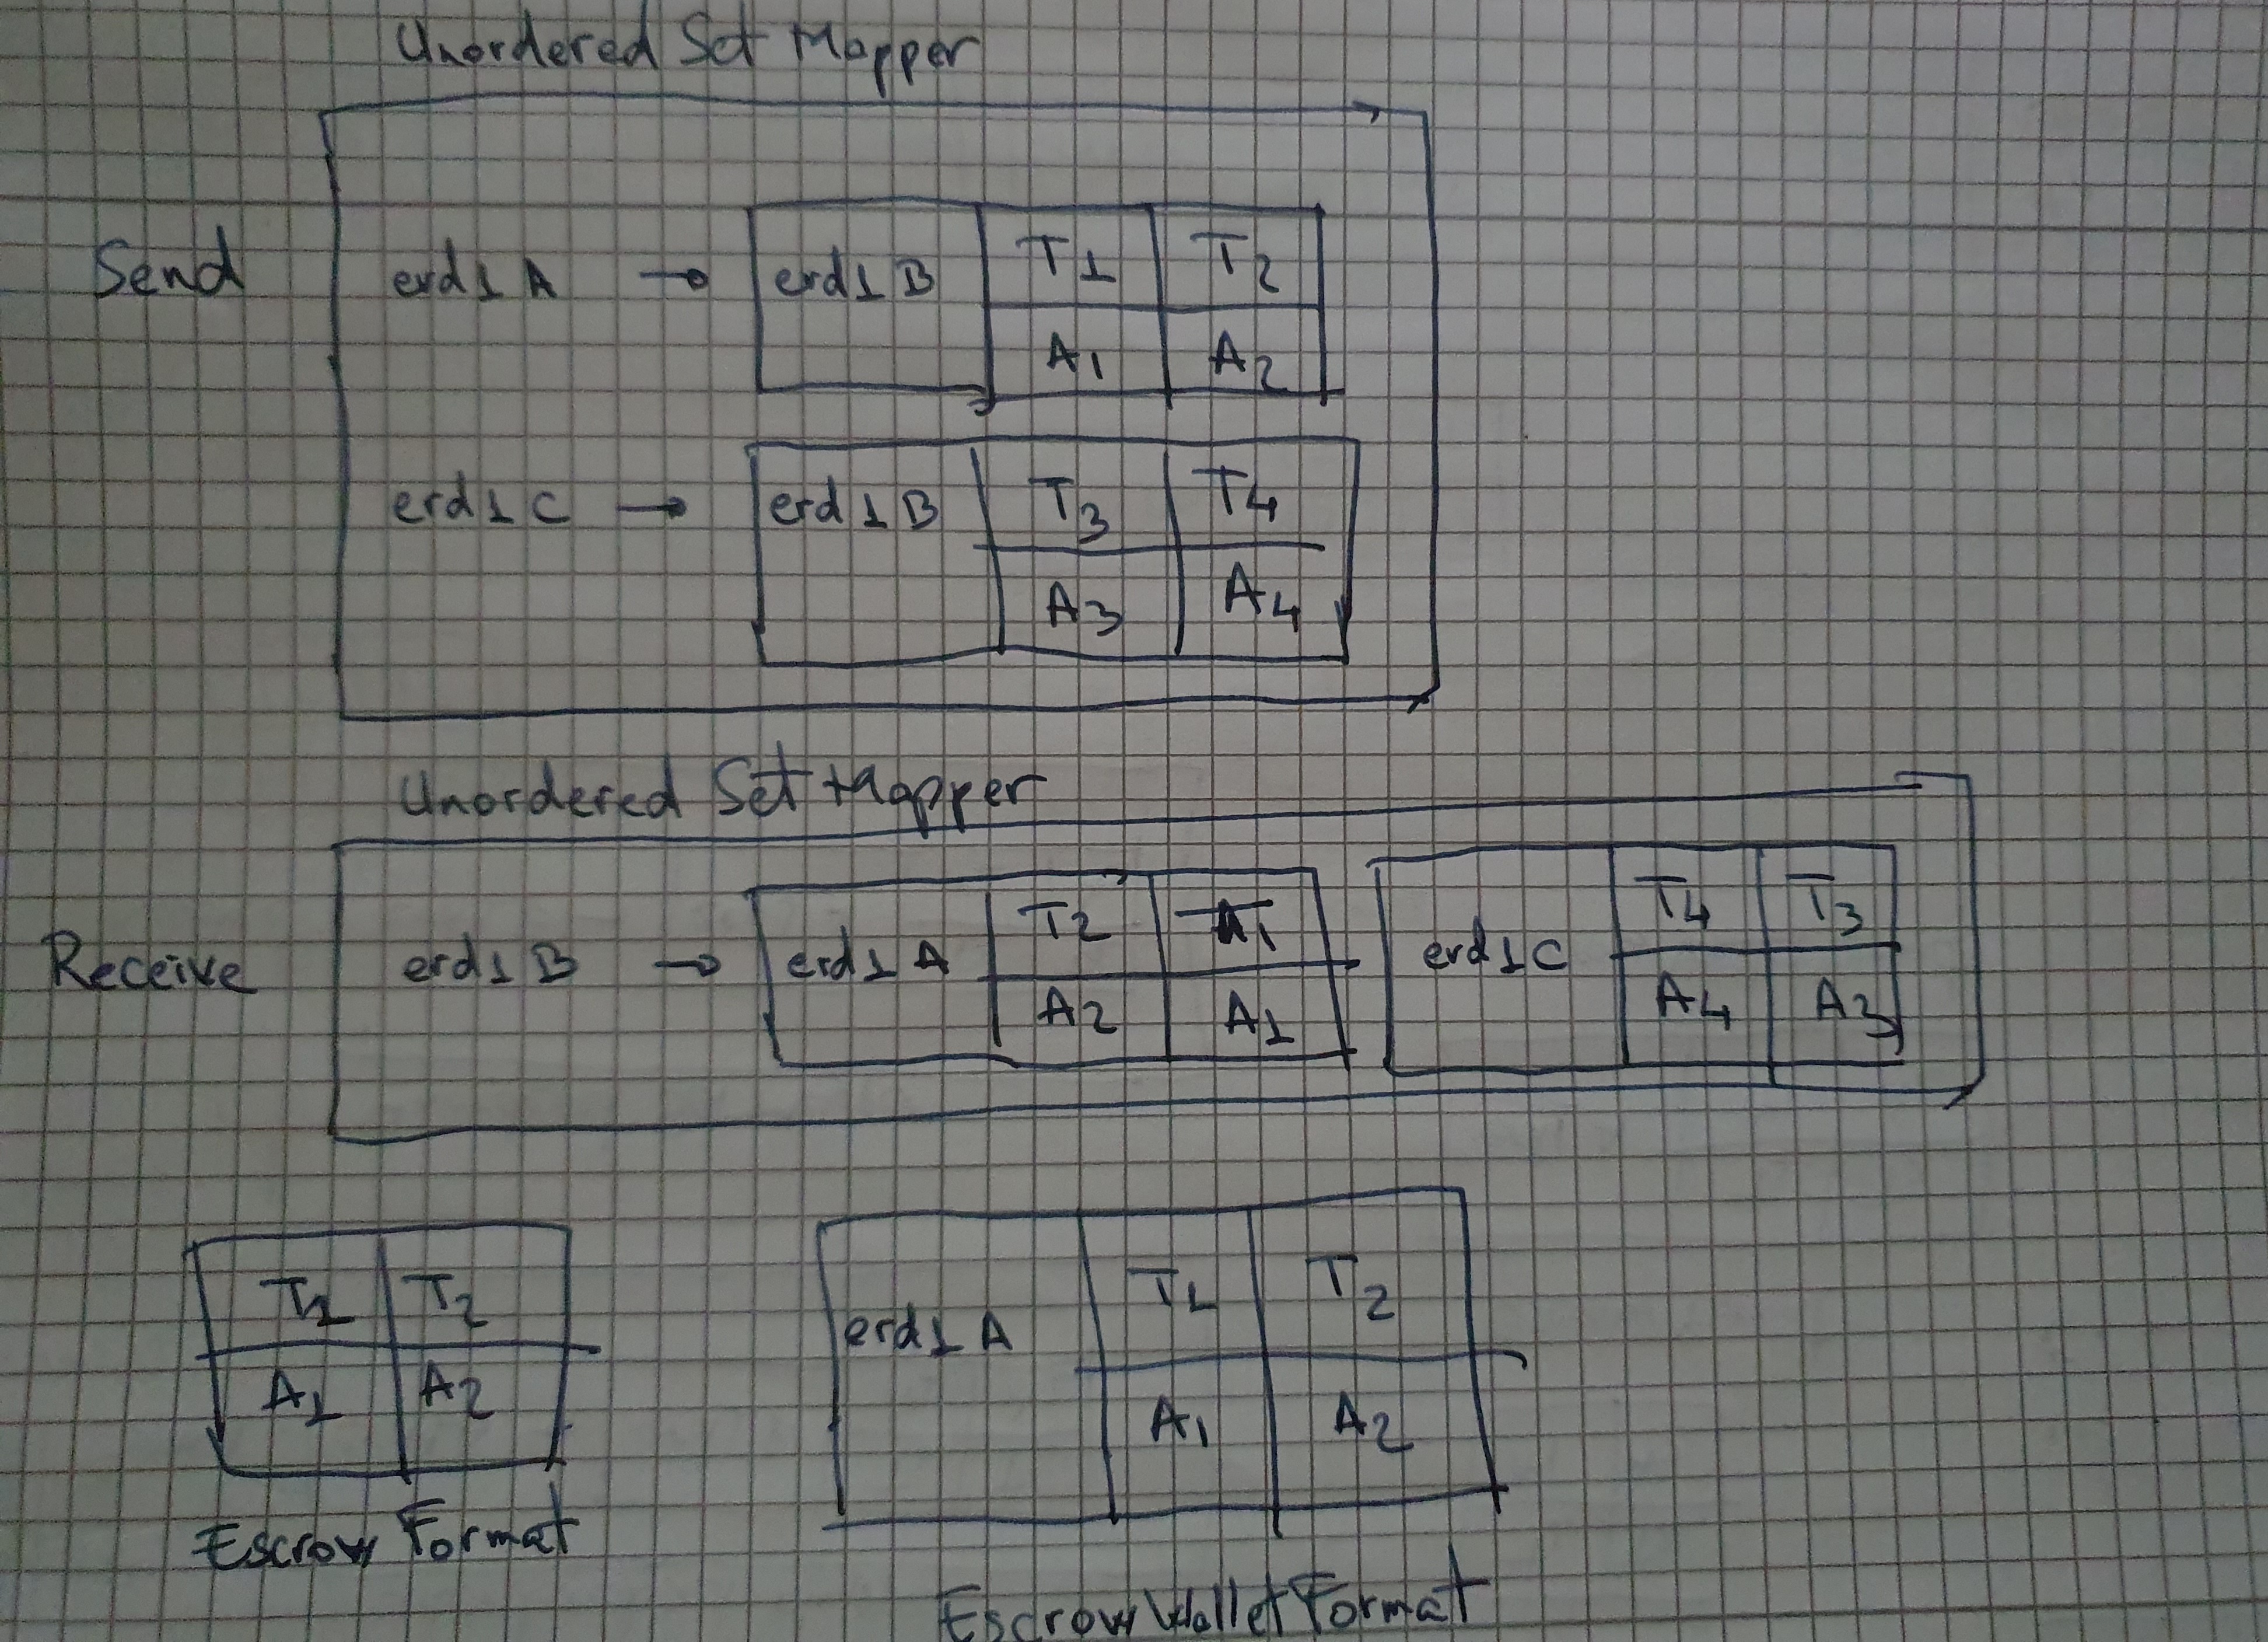 Unordered Set Mapper
Send
erd1 A → erd1 B T1 T2
A1 A2
erd1 C → erd1 B T3 T4
A3 A4
Unordered Set Mapper
Receive
erd1 B → erd1 A T2 T1 erd1 C T4 T3
A2 A1 A4 A3
T1 T2
A1 A2
Escrow Format
erd1 A T1 T2
A1 A2
Escrow Wallet Format